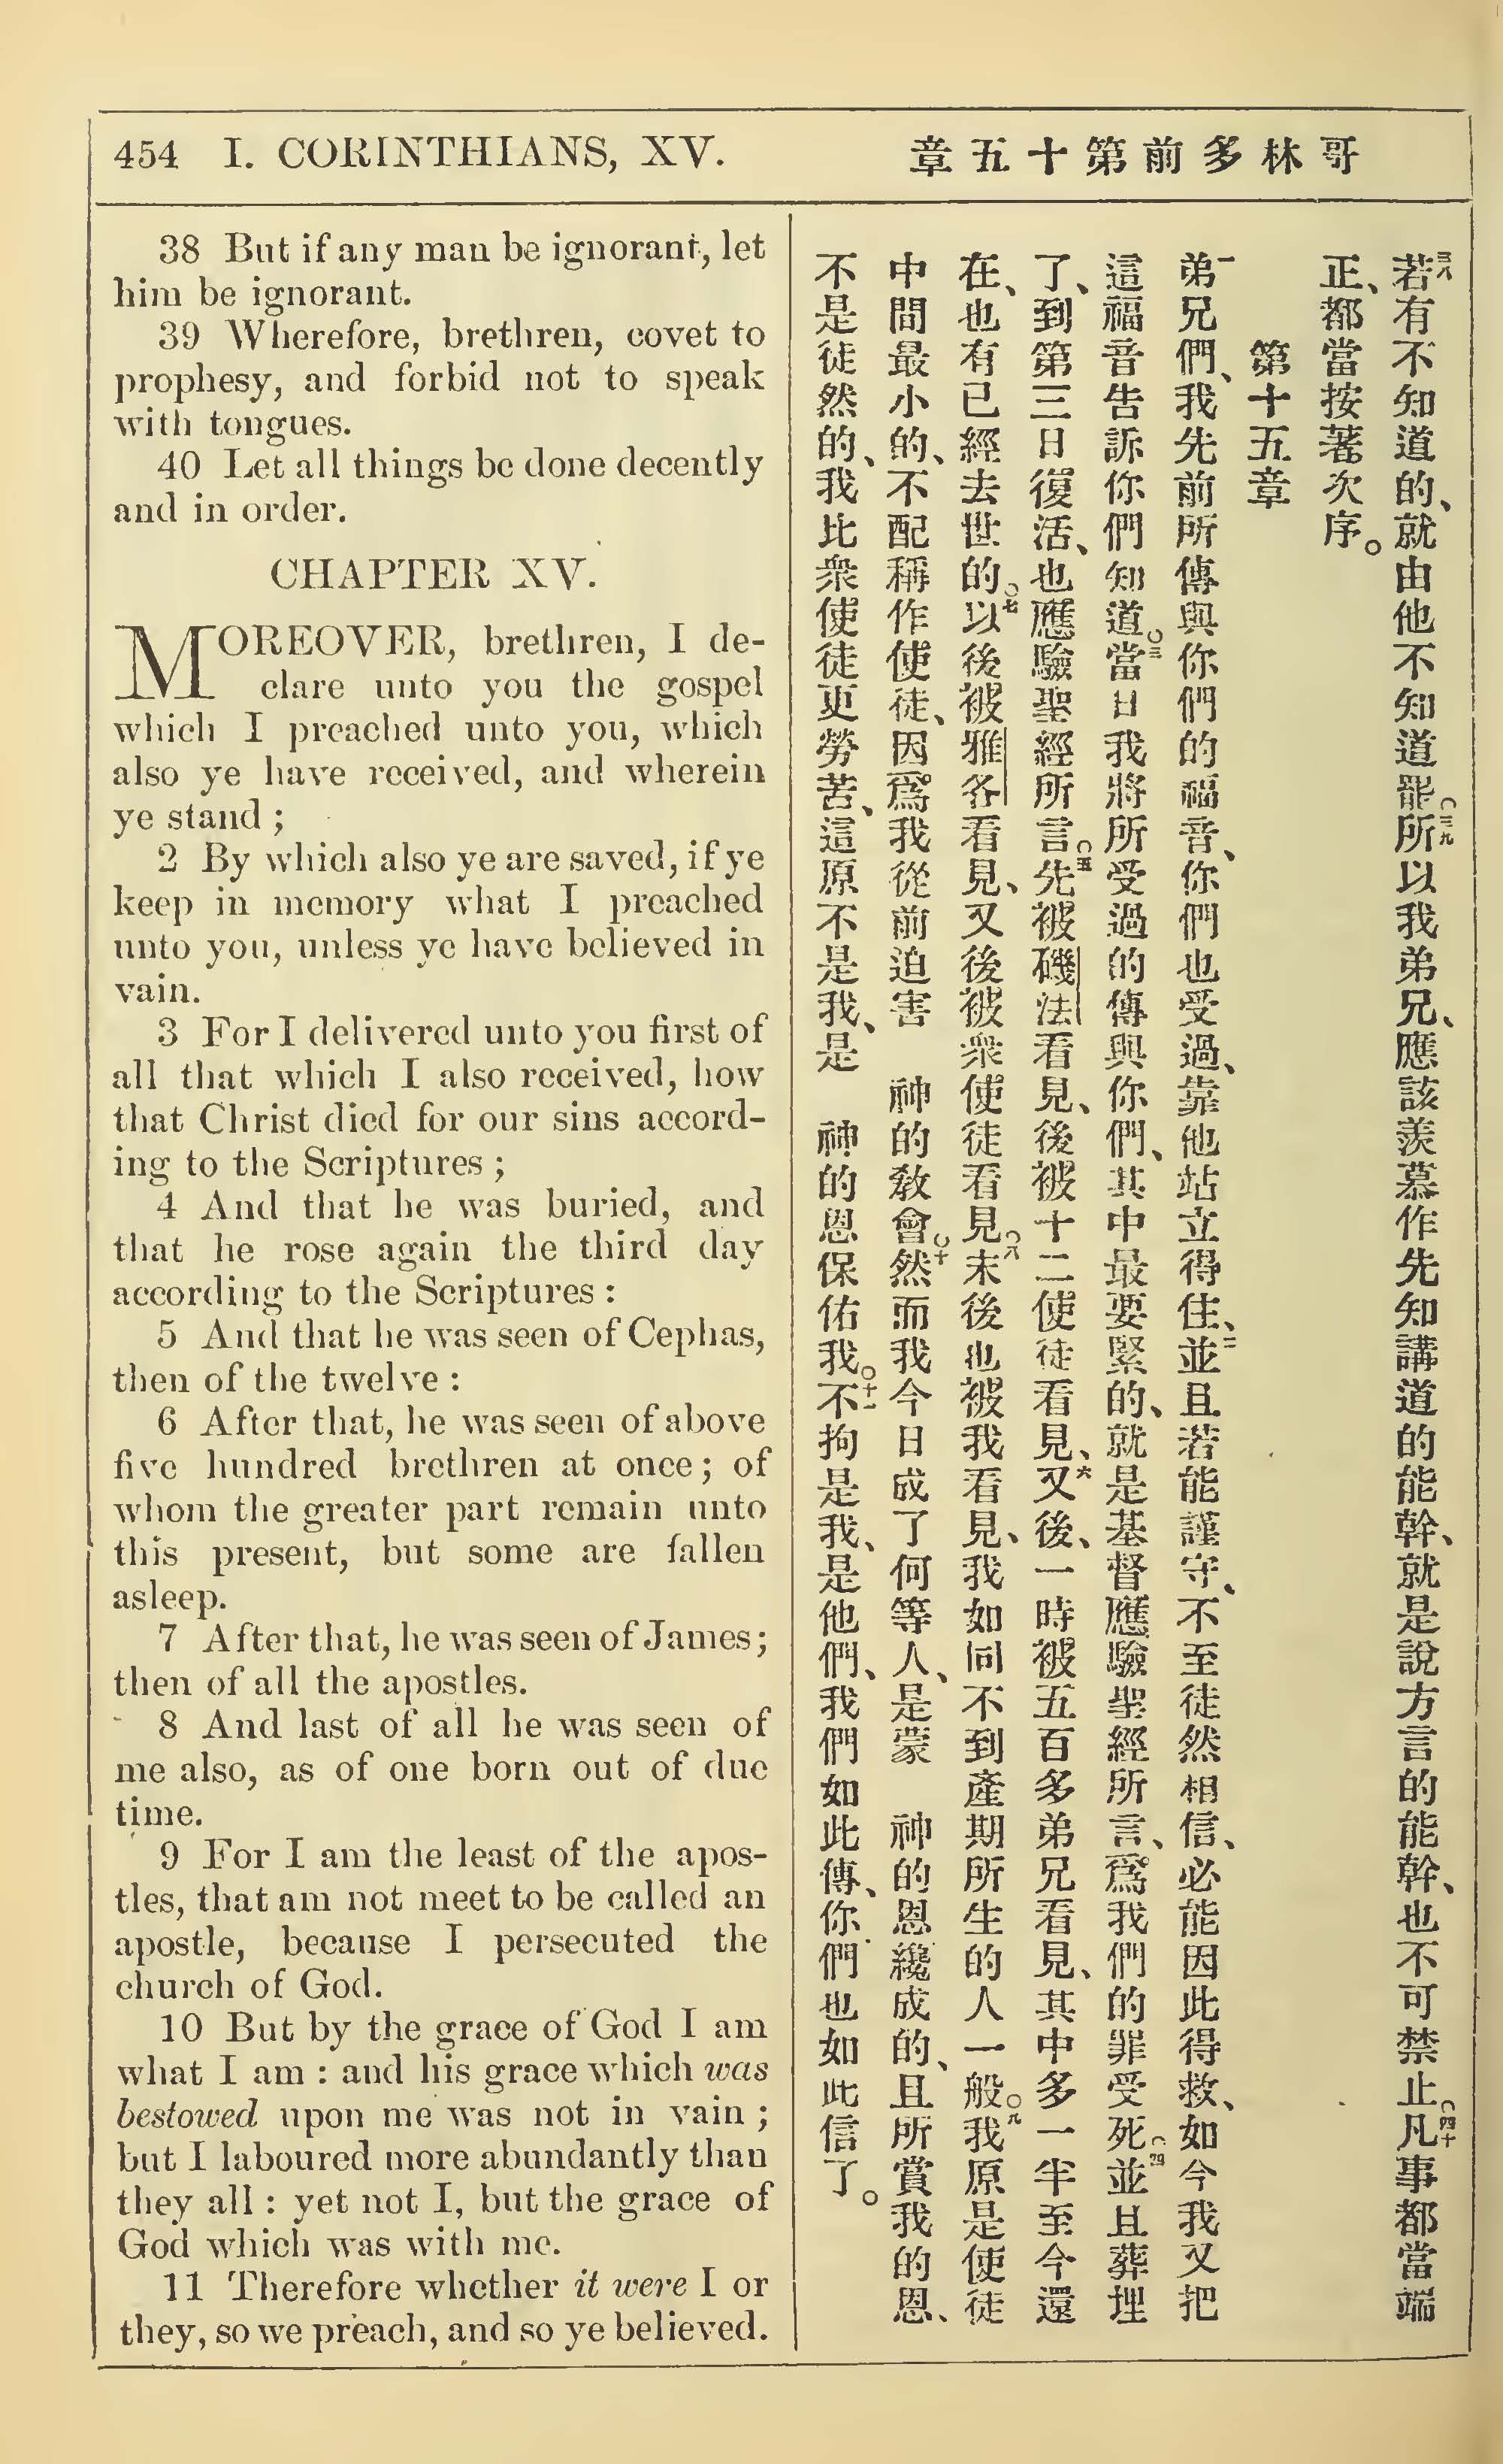 454 I. CORINTHIANS, XV.
哥林多前第十五章
38 But if any man be ignorant, let
him be ignorant.
39 Wherefore, brethren, covet to
prophesy, and forbid not to speak
with tongues.
40 Let all things be done decently
and in order.
CHAPTER XV.
MOREOVER, brethren, I de-
clare unto you the gospel
which I preached unto you, which
also ye have received, and wherein
ye stand ;
2 By which also ye are saved, if ye
keep in memory what I preached
unto you, unless ye have believed in
vain.
3 For I delivered unto you first of
all that which I also received, how
that Christ died for our sins accord-
ing to the Scriptures ;
4 And that he was buried, and
that he rose again the third day
according to the Scriptures :
5 And that he was seen of Cephas,
then of the twelve :
6 After that, he was seen of above
five hundred brethren at once; of
whom the greater part remain unto
this present, but some are fallen
asleep.
7 After that, he was seen of James;
then of all the apostles.
8 And last of all he was seen of
me also, as of one born out of due
time.
9 For I am the least of the apos-
tles, that am not meet to be called an
apostle, because I persecuted the
church of God.
10 But by the grace of God I am
what I am : and his grace which was
bestowed upon me was not in vain ;
but I laboured more abundantly than
they all : yet not I, but the grace of
God which was with me.
11 Therefore whether it were I or
they, so we preach, and so ye believed.
三八若有不知道的、就由他不知道罷。三九所以我弟兄、應該羨慕作先知講道的能幹、就是說方言的能幹、也不可禁止。四十凡事都當端
正、都當按著次序。
第十五章
一弟兄們、我先前所傳與你們的福音、你們也受過、靠他站立得住、二並且若能謹守、不至徒然相信、必能因此得救、如今我又把
這福音告訴你們知道。三當日我將所受過的傳與你們、其中最要緊的、就是基督應驗聖經所言、爲我們的罪受死。四並且葬埋
了、到第三日復活、也應驗聖經所言。五先被磯法看見、後被十二使徒看見、六又後、一時被五百多弟兄看見、其中多一半至今還
在、也有已經去世的。七以後被雅各看見、又後被衆使徒看見。八末後也被我看見、我如同不到產期所生的人一般。九我原是使徒
中間最小的、不配稱作使徒、因爲我從前迫害 神的教會。十然而我今日成了何等人、是蒙 神的恩纔成的、且所賞我的恩、
不是徒然的、我比衆使徒更勞苦、這原不是我、是 神的恩保佑我。十一不拘是我、是他們、我們如此傳、你們也如此信了。